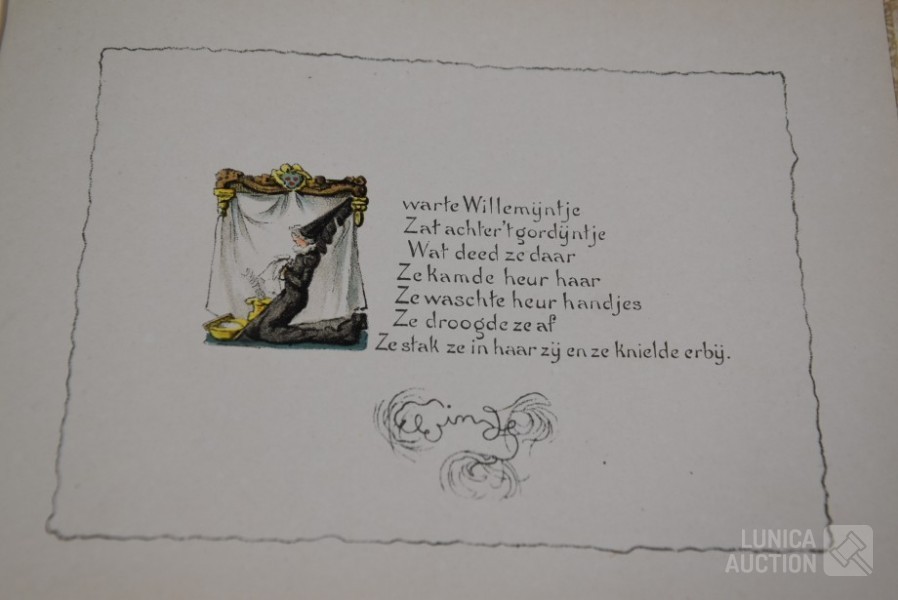 warte Willemijntje
Zat achter 't gordijntje
Wat deed ze daar
Ze kamde heur haar
Ze waschte heur handjes
Ze droogde ze af
Ze stak ze in haar zij en ze knielde erbij.
LUNICA
AUCTION